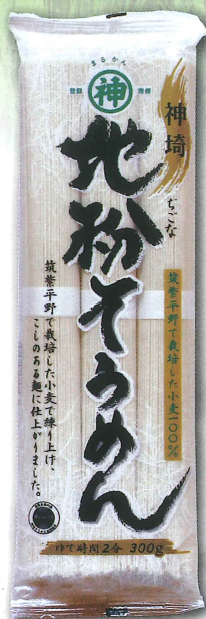 まるかん
登録 神 商標
神埼
地粉そうめん
ぢごな
筑紫平野で栽培した小麦一〇〇％
筑紫平野で栽培した小麦で練り上げ、
こしのある麺に仕上がりました。
ゆで時間2分 300g